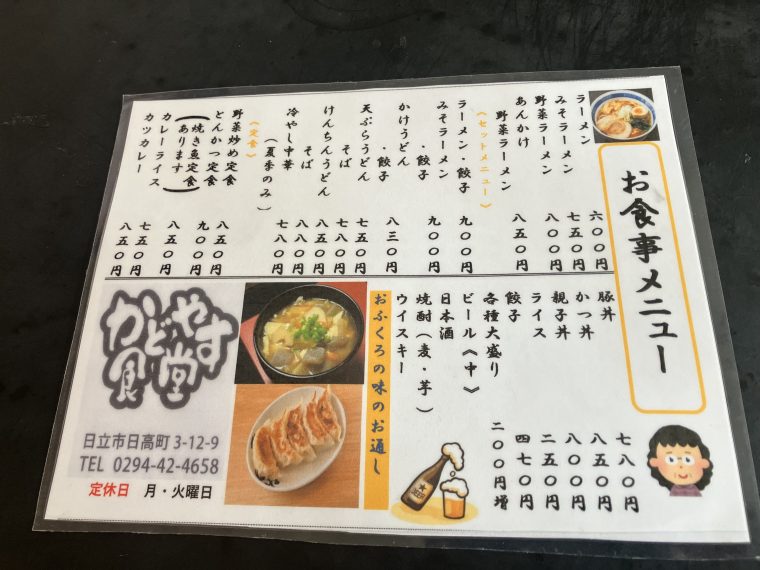 お食事メニュー
ラーメン 六〇〇円
みそラーメン 七五〇円
野菜ラーメン 八〇〇円
あんかけ
野菜ラーメン 八五〇円
《セットメニュー》
ラーメン・餃子 九〇〇円
みそラーメン
・餃子 九〇〇円
かけうどん
・餃子 八三〇円
天ぷらうどん 七五〇円
そば 七八〇円
けんちんうどん 八五〇円
そば 八八〇円
冷やし中華
(夏季のみ) 七八〇円
《定食》
野菜炒め定食 八五〇円
とんかつ定食 九〇〇円
(焼き魚定食
あります) 八五〇円
カレーライス 七五〇円
カツカレー 八五〇円
豚丼 七八〇円
かつ丼 八五〇円
親子丼 八〇〇円
ライス 二五〇円
餃子 四七〇円
各種大盛り 二〇〇円増
ビール《中》
日本酒
焼酎(麦・芋)
ウイスキー
おふくろの味のお通し
BEER
かどやす
食堂
日立市日高町 3-12-9
TEL 0294-42-4658
定休日 月・火曜日